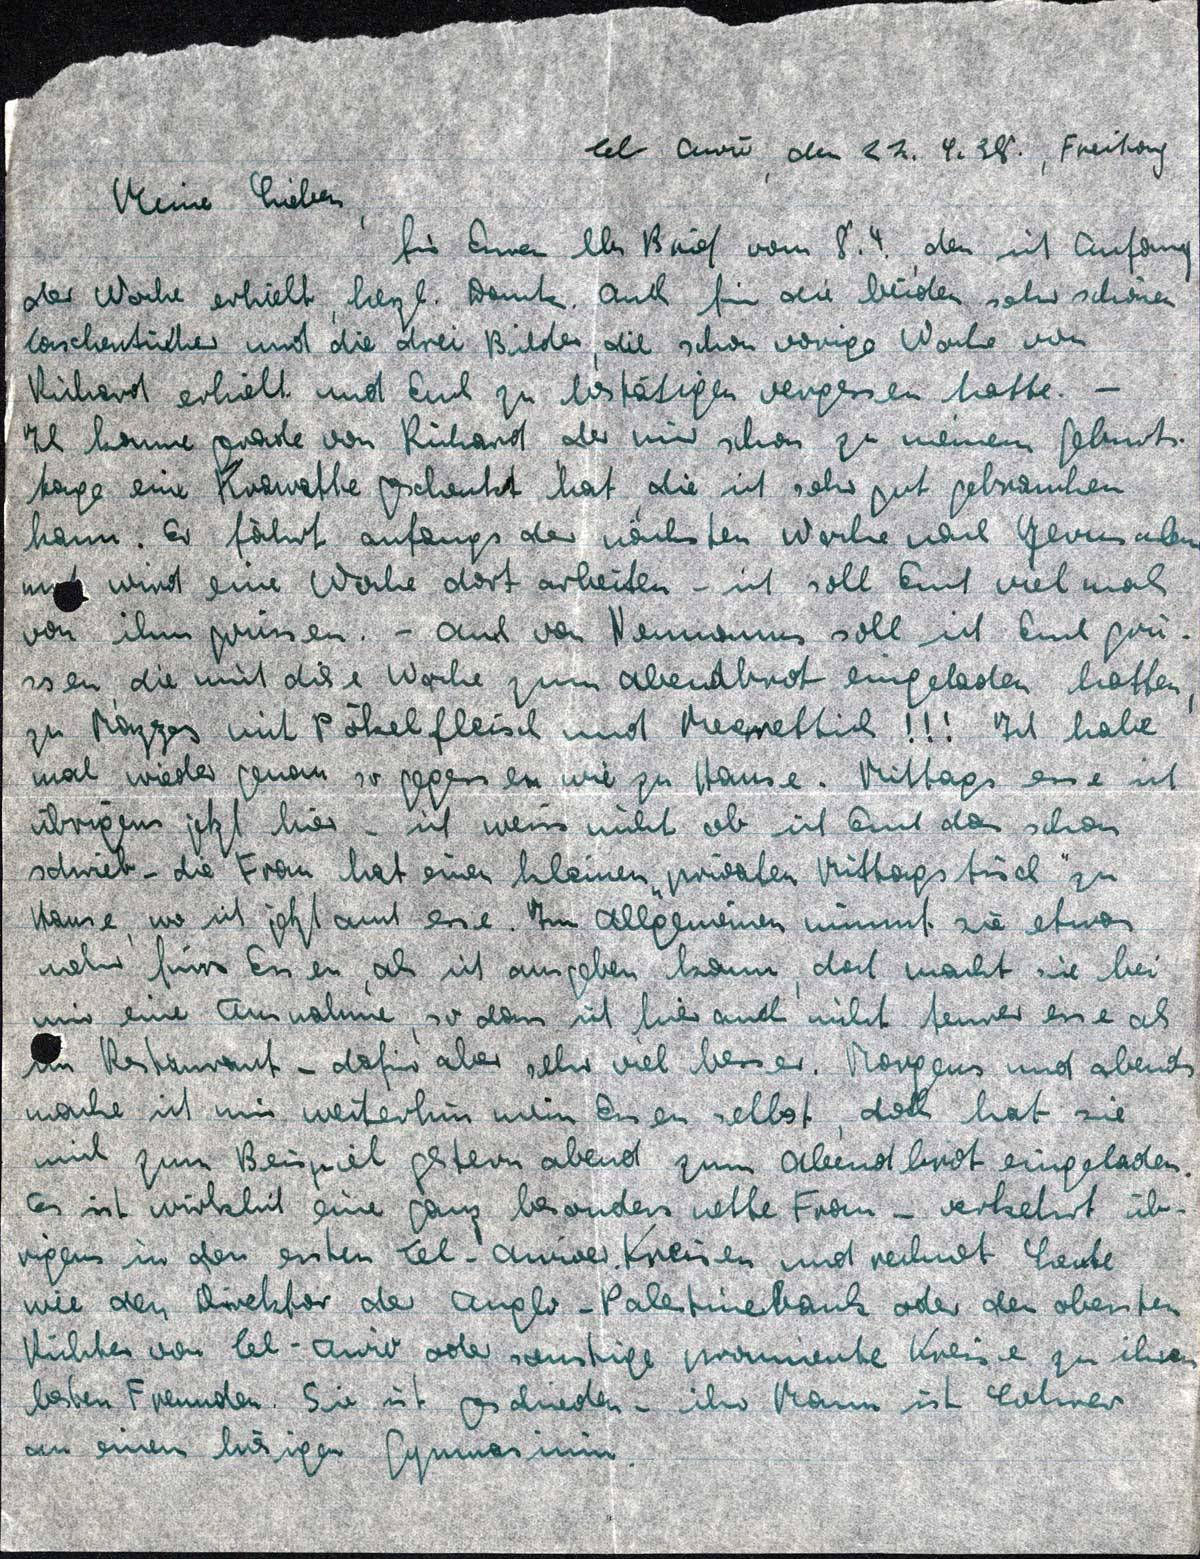 Tel Aviv, den 22. 4. 38., Freitag
Meine Lieben,
für Euren lb. Brief vom 8.4., den ich Anfang
der Woche erhielt, herzl. Dank. Auch für die beiden sehr schönen
Taschentücher und die drei Bilder, die schon vorige Woche von
Richard erhielt und Euch zu bestätigen vergessen hatte. –
Ich komme grade von Richard der mir schon zu meinem Geburts-
tage eine Krawatte geschenkt hat, die ich sehr gut gebrauchen
kann. Er fährt anfangs der nächsten Woche nach Jerusalem
und wird eine Woche dort arbeiten – ich soll Euch vielmals
von ihm grüssen. – Auch von Neumanns soll ich Euch grü-
ssen, die mich diese Woche zum Abendbrot eingeladen hatten,
zu Mazzes mit Pökelfleisch und Meerrettich!!! Ich habe
mal wieder genau so gegessen wie zu Hause. Mittags esse ich
übrigens jetzt hier – ich weiss nicht ob ich Euch das schon
schrieb – die Frau hat einen kleinen „privaten Mittagstisch" zu
Hause, wo ich jetzt auch esse. Im Allgemeinen nimmt sie etwas
mehr fürs Essen, als ich ausgeben kann, doch macht sie bei
mir eine Ausnahme, so dass ich hier auch nicht teurer esse als
im Restaurant – dafür aber sehr viel besser. Morgens und abends
mache ich mir weiterhin mein Essen selbst, doch hat sie
mich zum Beispiel gestern abend zum Abendbrot eingeladen.
Es ist wirklich eine ganz besonders nette Frau – verkehrt üb-
rigens in den ersten Tel-Aviver Kreisen und rechnet Leute
wie den Direktor der Anglo-Palestinebank oder den obersten
Richter von Tel-Aviv oder sonstige prominente Kreise zu ihren
besten Freunden. Sie ist geschieden – ihr Mann ist Lehrer
an einem hiesigen Gymnasium.